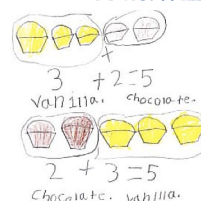 +
3 +2=5
vanilla. chocolate.
2 + 3=5
Chocolate. vanilla.